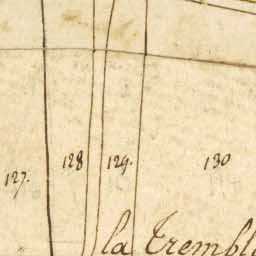 127. 128 129. 130
la trembl